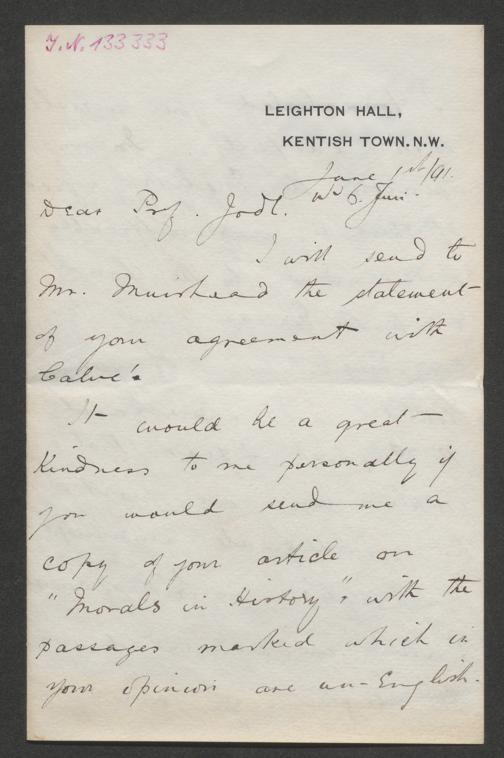 J.N. 133333
LEIGHTON HALL,
KENTISH TOWN. N.W.
June 1st/91.
6. Juni.
Dear Prof. Jodl.
I will send to
Mr. Muirhead the statement
of your agreement with
Calve's
It would be a great
kindness to me personally if
you would send me a
copy of your article on
"Morals in History", with the
passages marked which in
your opinion are un-English.